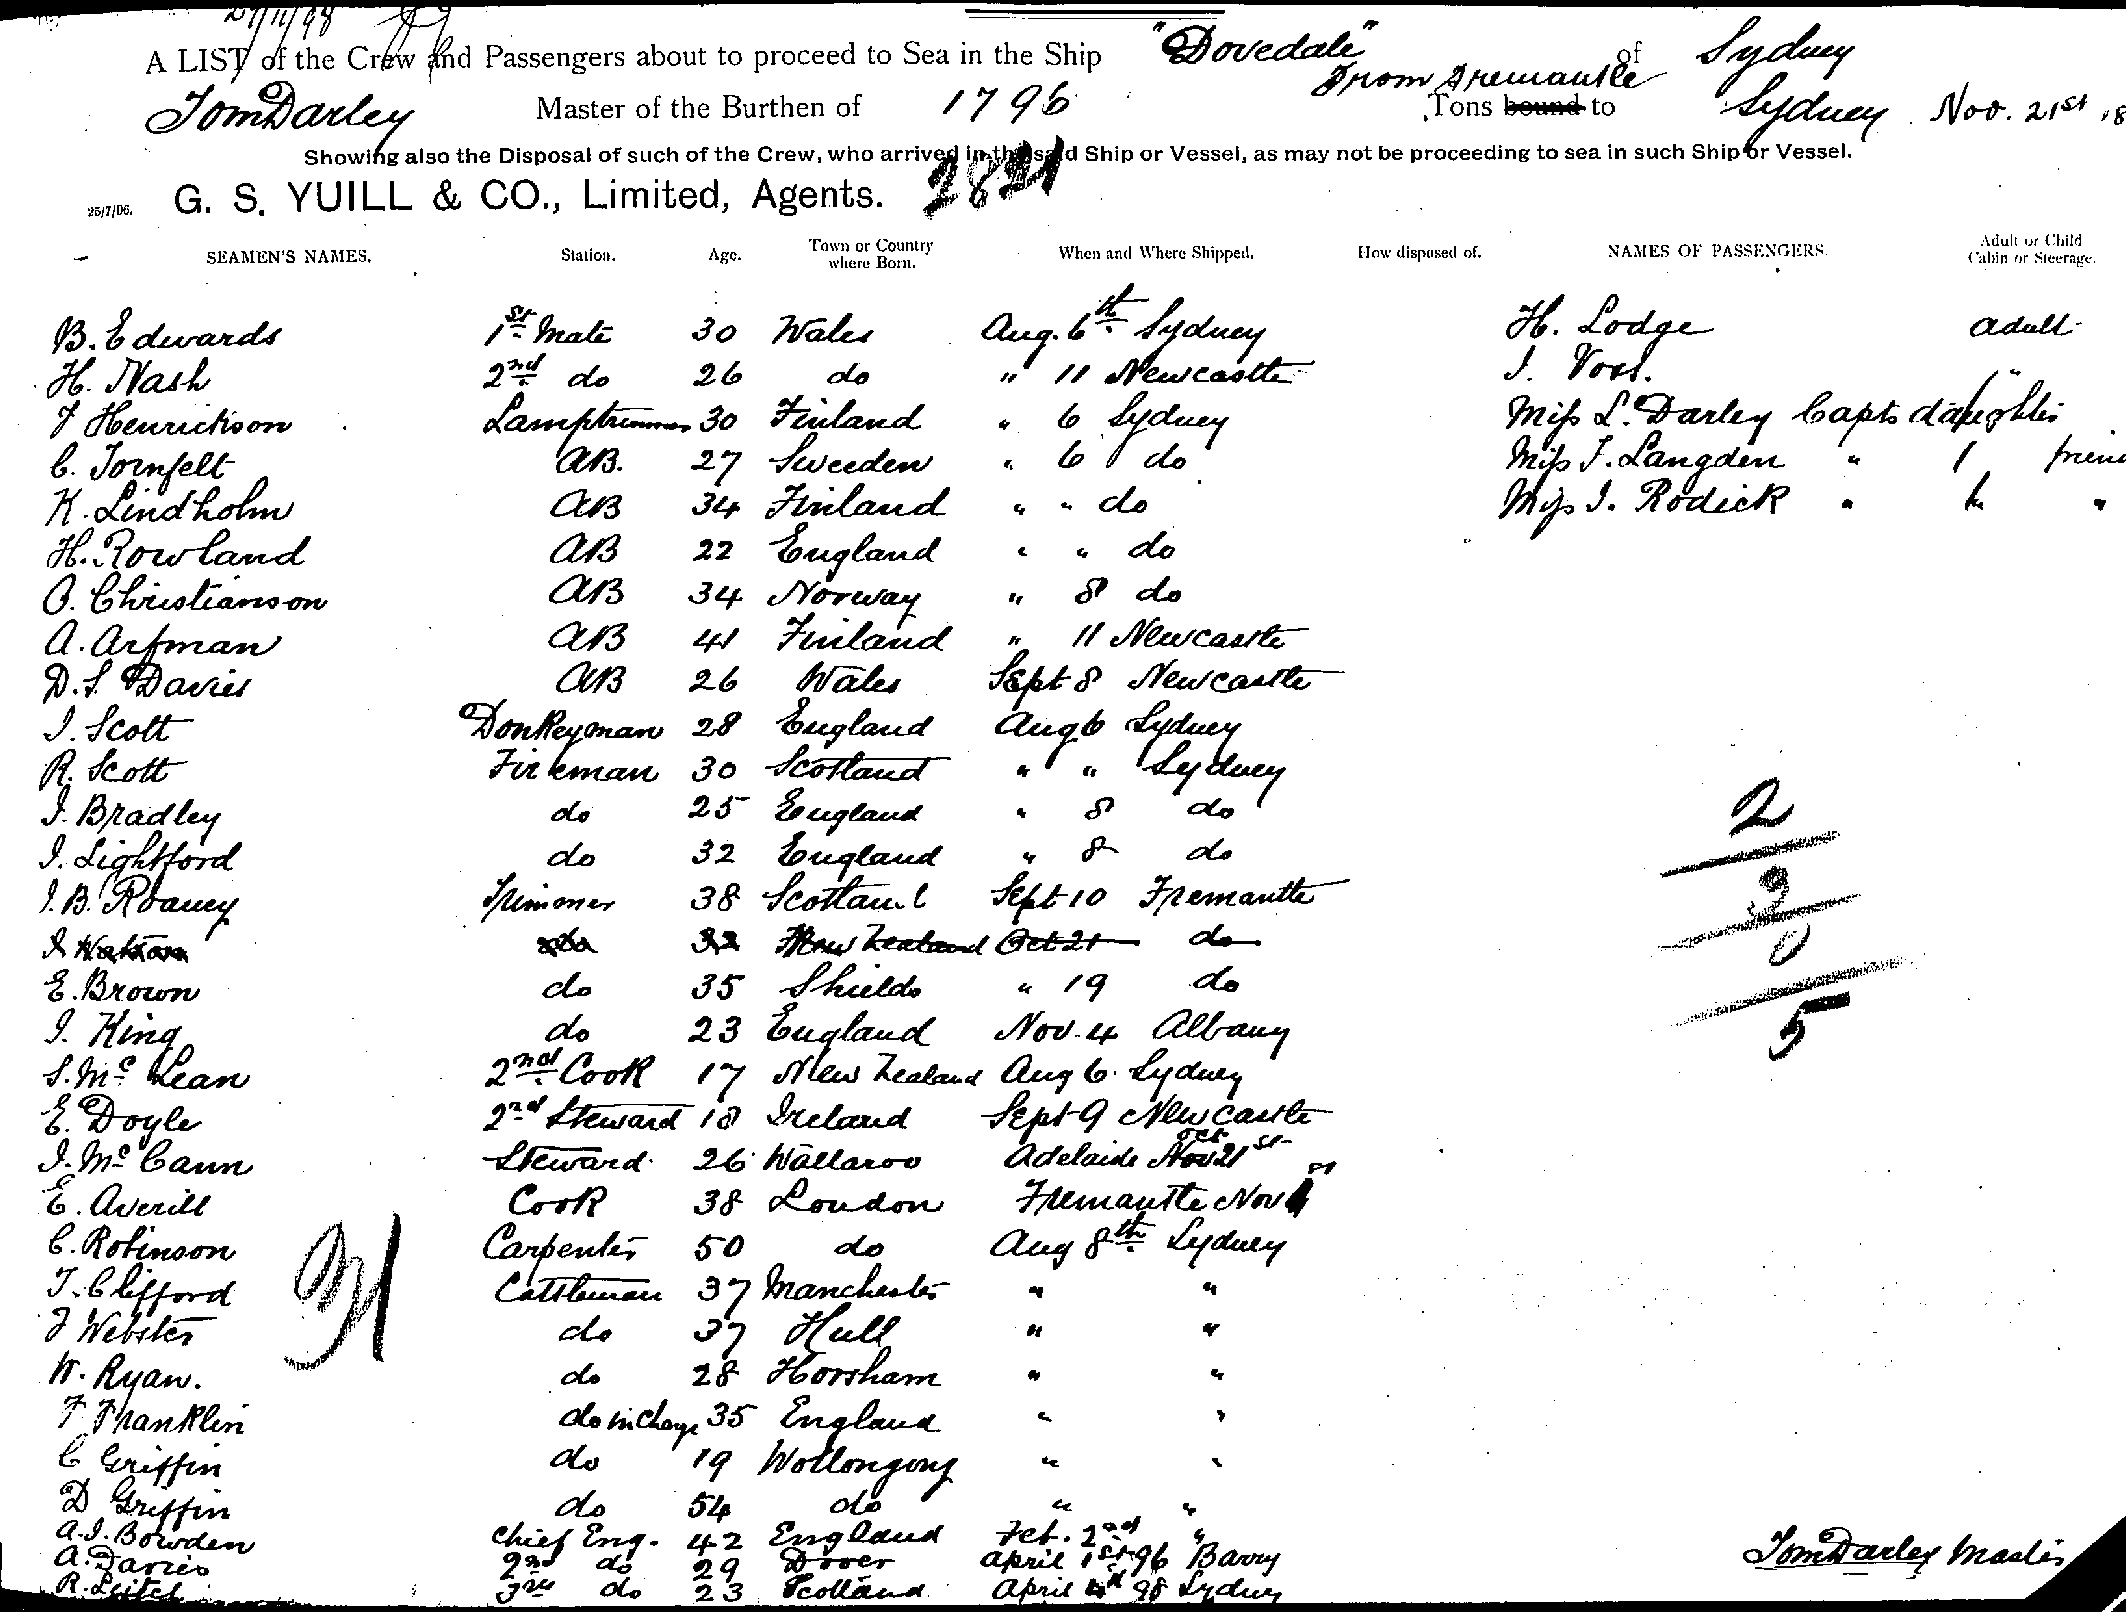 21/11/98
A LIST of the Crew and Passengers about to proceed to Sea in the Ship "Dovedale" of Sydney
From Fremantle
Tom Darley Master of the Burthen of 1796 Tons bound to Sydney Nov. 21st 18
Showing also the Disposal of such of the Crew, who arrived in the said Ship or Vessel, as may not be proceeding to sea in such Ship or Vessel.
25/7/06. G. S. YUILL & CO., Limited, Agents. 2821
SEAMEN'S NAMES. Station. Age. Town or Country where Born. When and Where Shipped. How disposed of. NAMES OF PASSENGERS. Adult or Child Cabin or Steerage.
B. Edwards 1st Mate 30 Wales Aug. 6th Sydney H. Lodge adult
H. Nash 2nd do 26 do " 11 Newcastle I. Voss. "
F Henrickson Lamptrimmer 30 Finland " 6 Sydney Miss L. Darley Capts daughter
C. Tornfelt AB. 27 Sweeden " 6 do Miss F. Langden " friend
K. Lindholm AB 34 Finland " " do Miss I. Rodick " "
H. Rowland AB 22 England " " do
O. Christianson AB 34 Norway " 8 do
A. Arfman AB 41 Finland " 11 Newcastle
D. S. Davies AB 26 Wales Sept 8 Newcastle
J. Scott Donkeyman 28 England Aug 6 Sydney
R. Scott Fireman 30 Scotland " " Sydney
J. Bradley do 25 England " 8 do
J. Lightford do 32 England " 8 do
J. B. Roaney Trimmer 38 Scotland Sept 10 Fremantle
J Watson do 32 New Zealand Oct 21 do
E. Brown do 35 Shields " 19 do
J. King do 23 England Nov. 4 Albany
S. Mc Lean 2nd Cook 17 New Zealand Aug 6. Sydney
E. Doyle 2nd Steward 18 Ireland Sept 9 Newcastle
J. Mc Cann Steward 26 Wallaroo Adelaide Nov Oct 21st
E. Averill Cook 38 London Fremantle Nov
C. Robinson Carpenter 50 do Aug 8th Sydney
T. Clifford Cattleman 37 Manchester " "
F Webster do 37 Hull " "
W. Ryan. do 28 Horsham " "
F Franklin do in charge 35 England " "
C Griffin do 19 Wollongong " "
D Griffin do 54 do " "
A. J. Bowden Chief Eng. 42 England Feb. 2nd "
A. Davies 2nd do 29 Dover April 1st 96 Barry
R. Leitch 3rd do 23 Scotland April 98 Sydney
2
3
0
5
31
Tom Darley Master